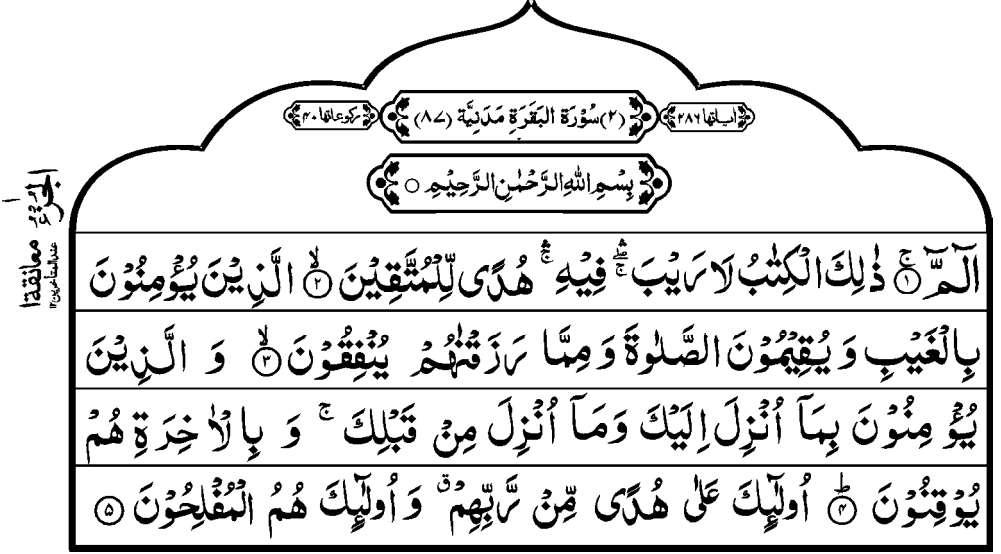 اٰیاتھا ۲۸۶ (۲) سُوْرَةُ الْبَقَرَةِ مَدَنِیَّةٌ (۸۷) رکوعاتھا ۴۰
بِسْمِ اللهِ الرَّحْمٰنِ الرَّحِیْمِ ○
الٓمّٓ ۚ﴿۱﴾ ذٰلِكَ الْكِتٰبُ لَا رَیْبَ ۛۖۚ فِیْهِ ۛۚ هُدًی لِّلْمُتَّقِیْنَ ۙ﴿۲﴾ الَّذِیْنَ یُؤْمِنُوْنَ
بِالْغَیْبِ وَ یُقِیْمُوْنَ الصَّلٰوةَ وَ مِمَّا رَزَقْنٰهُمْ یُنْفِقُوْنَ ۙ﴿۳﴾ وَ الَّذِیْنَ
یُؤْمِنُوْنَ بِمَاۤ اُنْزِلَ اِلَیْكَ وَمَاۤ اُنْزِلَ مِنْ قَبْلِكَ ۚ وَ بِالْاٰخِرَةِ هُمْ
یُوْقِنُوْنَ ؕ﴿۴﴾ اُولٰٓئِكَ عَلٰی هُدًی مِّنْ رَّبِّهِمْ ۗ وَ اُولٰٓئِكَ هُمُ الْمُفْلِحُوْنَ ﴿۵﴾
الجزء ۱
معانقة ۱
عند المتأخرین ۱۲